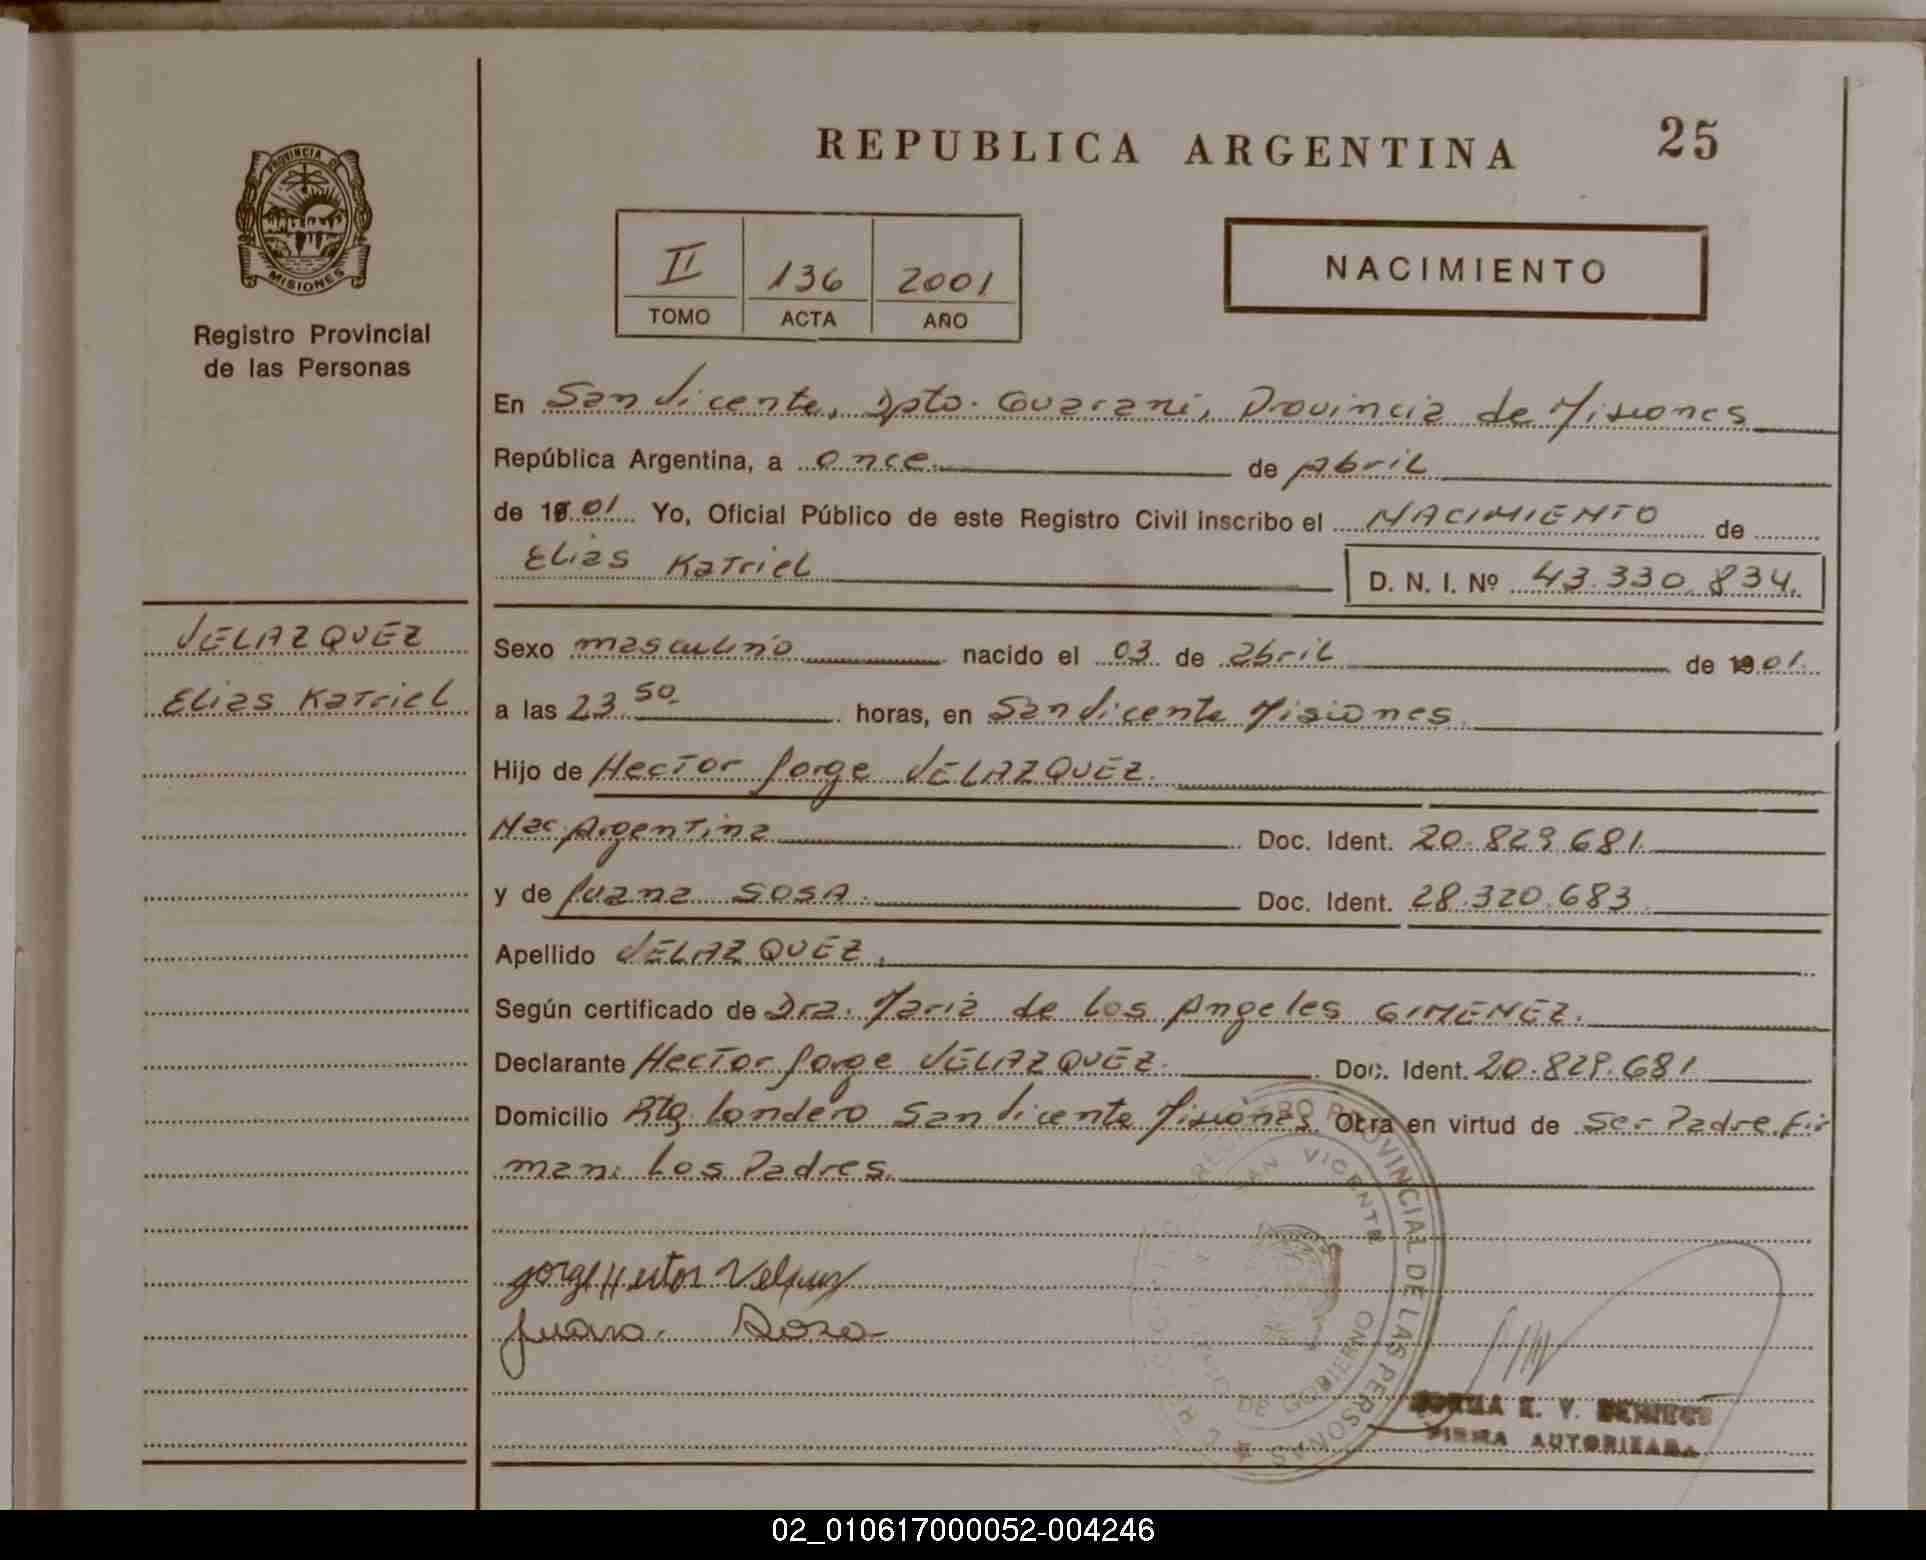 REPUBLICA ARGENTINA 25
PROVINCIA DE
MISIONES
Registro Provincial
de las Personas
II 136 2001
TOMO ACTA AÑO
NACIMIENTO
En San Vicente, Dpto. Guarani, Provincia de Misiones
República Argentina, a once de Abril
de 19 01 Yo, Oficial Público de este Registro Civil inscribo el NACIMIENTO de
Elias Katriel D. N. I. Nº 43.330.834.
VELAZQUEZ
Elias Katriel
Sexo masculino nacido el 03 de abril de 19 01.
a las 23 50 horas, en San Vicente Misiones.
Hijo de Hector Jorge VELAZQUEZ.
Nac Argentina Doc. Ident. 20.829.681.
y de Juana SOSA. Doc. Ident. 28.320.683.
Apellido VELAZQUEZ.
Según certificado de Dra. Maria de los Angeles GIMENEZ.
Declarante Hector Jorge VELAZQUEZ. Doc. Ident. 20.829.681
Domicilio Rtg. Londero San Vicente Misiones. Obra en virtud de Ser Padre. Fir
man: Los Padres.
Jorge Hector
Juana Sosa
REGISTRO PROVINCIAL DE LAS PERSONAS
SAN VICENTE
DE GOBIERNO
FIRMA AUTORIZADA
02_010617000052-004246